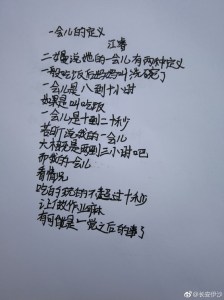 一会儿的定义
江睿
二姐说她的一会儿有两种定义
一般吃饭后妈妈叫洗碗了
一会儿是八到十小时
如果是叫吃饭
一会儿是十到二十秒
爸听说我的一会儿
大概是两到三小时吧
而我的一会儿
看情况
吃的玩的不超过十秒
让我做作业嘛
有可能是一觉之后的事了
@长安伊沙